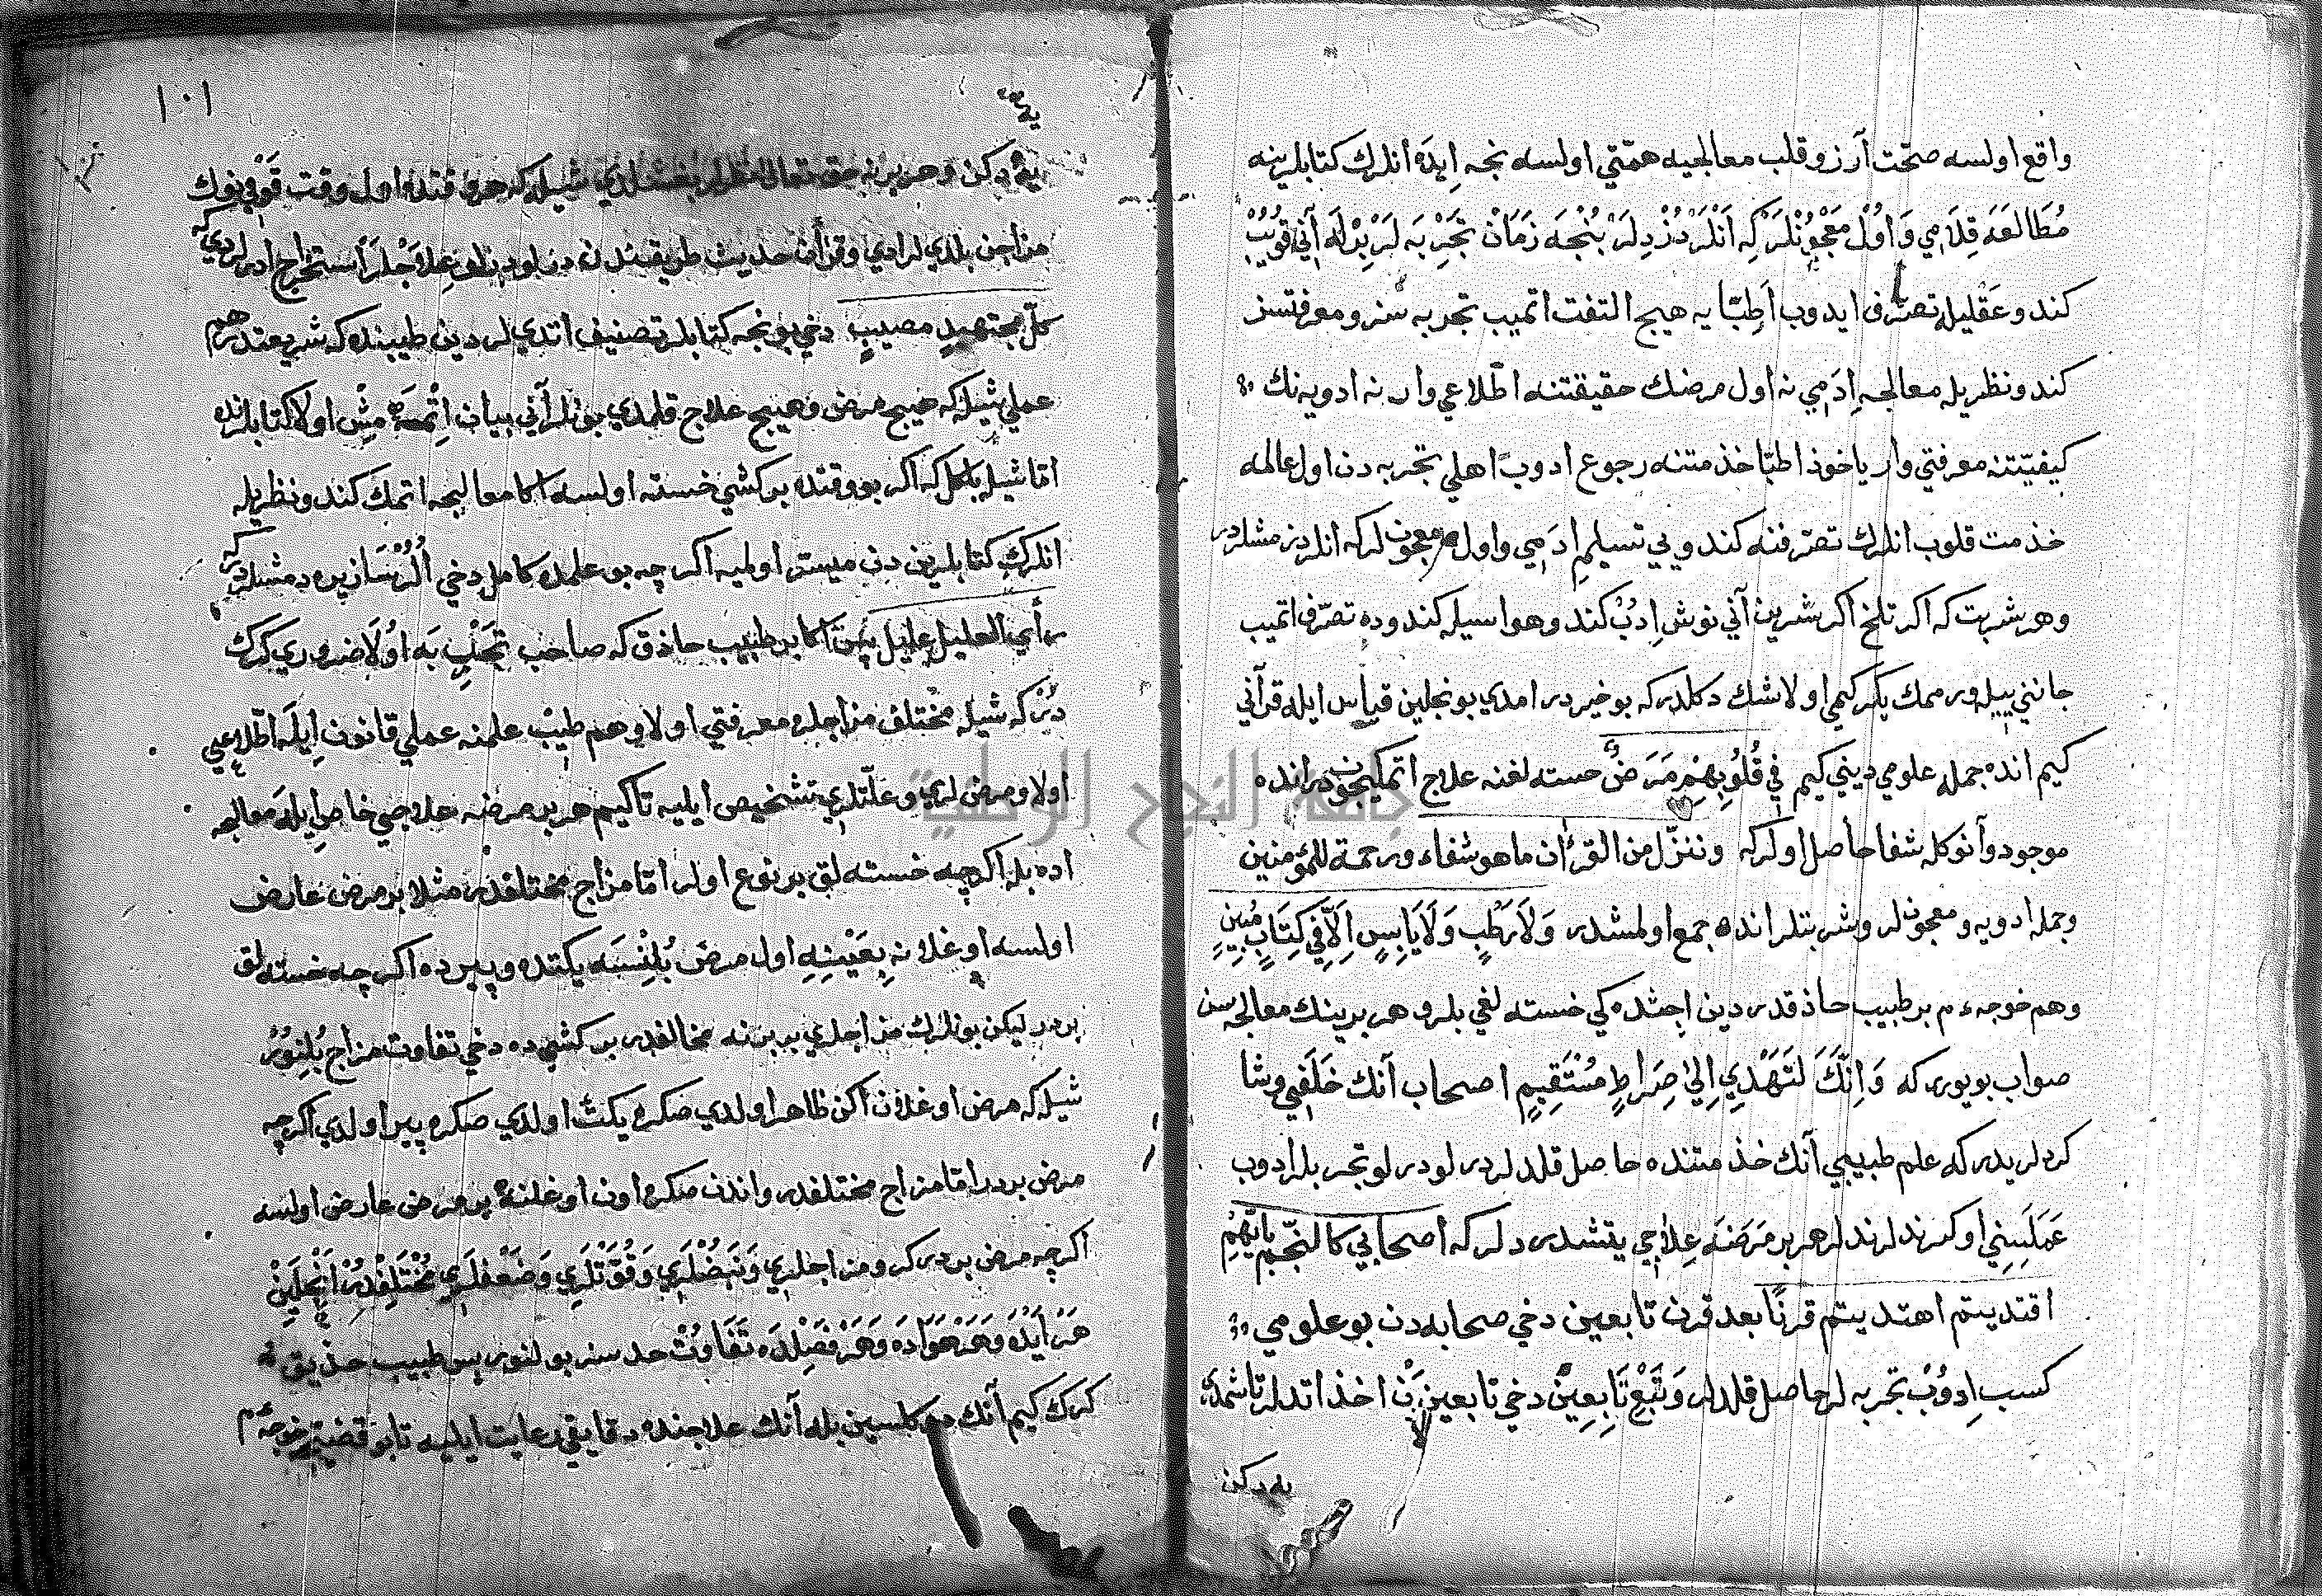 واقع اولسه صحّت آرزو قلب معالجيه همّتي اولسه نجه اِيدَه انلرك كتابلرينه
مُطَالَعَه قِلَا مِي وَ اُوْل مَعْجُونْلَرْكِه اَنْلَرْ دُزْدِلَرْ بُنْجَه زَمَانْ تَجْرِبَه لَرْ بِرْلَه آني قويُبْ
كندو عَقْليله تصرّف ايدوب اَطِبّا يه هيچ التفت اتميب تجربه سز و معرفتسز
كندو نظريله معالجه اِدَمِي نه اول مرضك حقيقتنه اطّلاعي وار نه ادويه نك
كيفيّتنه معرفتي وار ياخوذ اطبّا خذمتنه رجوع ادوب اهلي تجربه دن اول عالمه
خذمت قلوب انلرك تصرّفنه كندويي تسيلم ادَمِي و اول معجون لركه انلر دزمشلردر
و هر شربت كه اكر تلخ اكر شرين آني نوش اِدُبْ كندو هواسيله كندوده تصرّف اتميب
جانني ييله ورممك يكركيمي اولا شك دكلدركه بو خيردر امدي بونجلين قياس ايله قرآني
كيم انده جمله علومي ديني كيم في قُلُوبِهِم مَرَضٌ خسته لغنه علاج اتمكيچون در انده
موجود و آنوكله شفا حاصل اولركه وننزّل من القرأن ما هو شفاء ورحمة للمؤمنين
و جمله ادويه و معجونلر و شربتلر انده جمع اولمشدر وَلَا رَطْبٍ وَلَا يَابِسٍ اِلَّا فِي كِتَابٍ مُبِينٍ
و هم خوجه ءم بر طبيب حاذقدر دين اچنده كي خسته لغي بلر و هر برينك معالجه سن
صواب بويوركه وَاِنَّكَ لَتَهْدِي اِلَىٰ صِرَاطٍ مُسْتَقِيمٍ اصحاب آنك خَلَفِي و شا
كردلريدركه علم طبيبي آنك خذمتنده حاصل قلدلر درلو درلو تجربلر ادوب
عَمَلَسِنِي اوكرندلر ندلر هر بر مَرَضَه عِلَاجِي يتشدر دلركه اصحابي كالنجم بايّهم
اقتديتم اهتديتم قرنًا بعد قرن تابعين دخي صحابه دن بو علومي
كسب اِدوُبْ تجربه لر حاصل قلدلر وَ تَبْعِ تَابِعِين دخي تابعين دن اخذ اتدلر تا شمدي
يه دكن
١٠١
يه دكن و هر برنه حق تعالى نظرلر بغشلدي شيله كه هر وقتده اول وقت قومينوك
مزاجن بلدي لر ادي و قرأن حديث طريقتندن درلو درلو علاجلر استخراج ادرلردي كه
كلّ مجتهدٍ مصيبٍ دخي بونجه كتابلر تصنيف اتدي لر دين طيبنده كه شريعتدر هم
عملي شيله كه هيج مرض و هيج علاج قلمدي بونلر آني بيان اتْمَمِشْ اولا كتابلرنده
امّا شيله بلكل كه اكر بو وقتده بر كشي خسته اولسه اكا معالجه اتمك كندو نظريله
انلرك كتابلرين دن ميسّر اولميه اكر چه بو علمده كامل دخي اولُرْسَا زيره دمشلردركه
رأي العليل عليل پس اكا بر طبيب حاذق كه صاحب تجربَه اوُلَا ضروري كرك
دُرْكه شيله مختلف مزاجلره معرفتي اولا و هم طيب علمنه عملي قانون ايلَه اطّلاعي
اولا و مرض لري و علّتلري تشخيص ايليه تا كيم هر بر مرضه علاجي خاص اِيلَه معالجه
اده بله اكرچه خسته لق بر نوع اولر امّا مزاج مختلفدر مثلا بر مرض عارض
اولسه اوغلانه بِعَيْنِهِ اول مرض بُلِنْسَه يكتده و پيرده اكر چه خسته لق
بردر ليكن بونلرك مزاجلري بربرنه مخالفدر بر كشي ده دخي تفاوت مزاج بُلِنوُرْ
شيله كه مرض اوغلان اكن ظاهر اولدي صكره يكت اولدي صكره پير اولدي اكرچه
مرض بردر امّا مزاج مختلفدر و اندن صكره اون اوغلنه بر مرض عارض اولسه
اكرچه مرض بردركر و مزاجلري وَ نَبَضْلَرِي وَ قُوَّتْلَرِي وَ ضَعْفلَرِي مُخْتَلِفْدِرْ اَنْجِلَيِنْ
هَرْ اَيْدَه وَ هَرْ هَوَادَه وَ هَرْ فَصِلْدَه تَفَاوُتْ حدسز بولنور پس طبيب حذيق
كرك كيم آنك علاجنده دقايقي رعايت ايليه تا بو قضيّه خوجه ءم